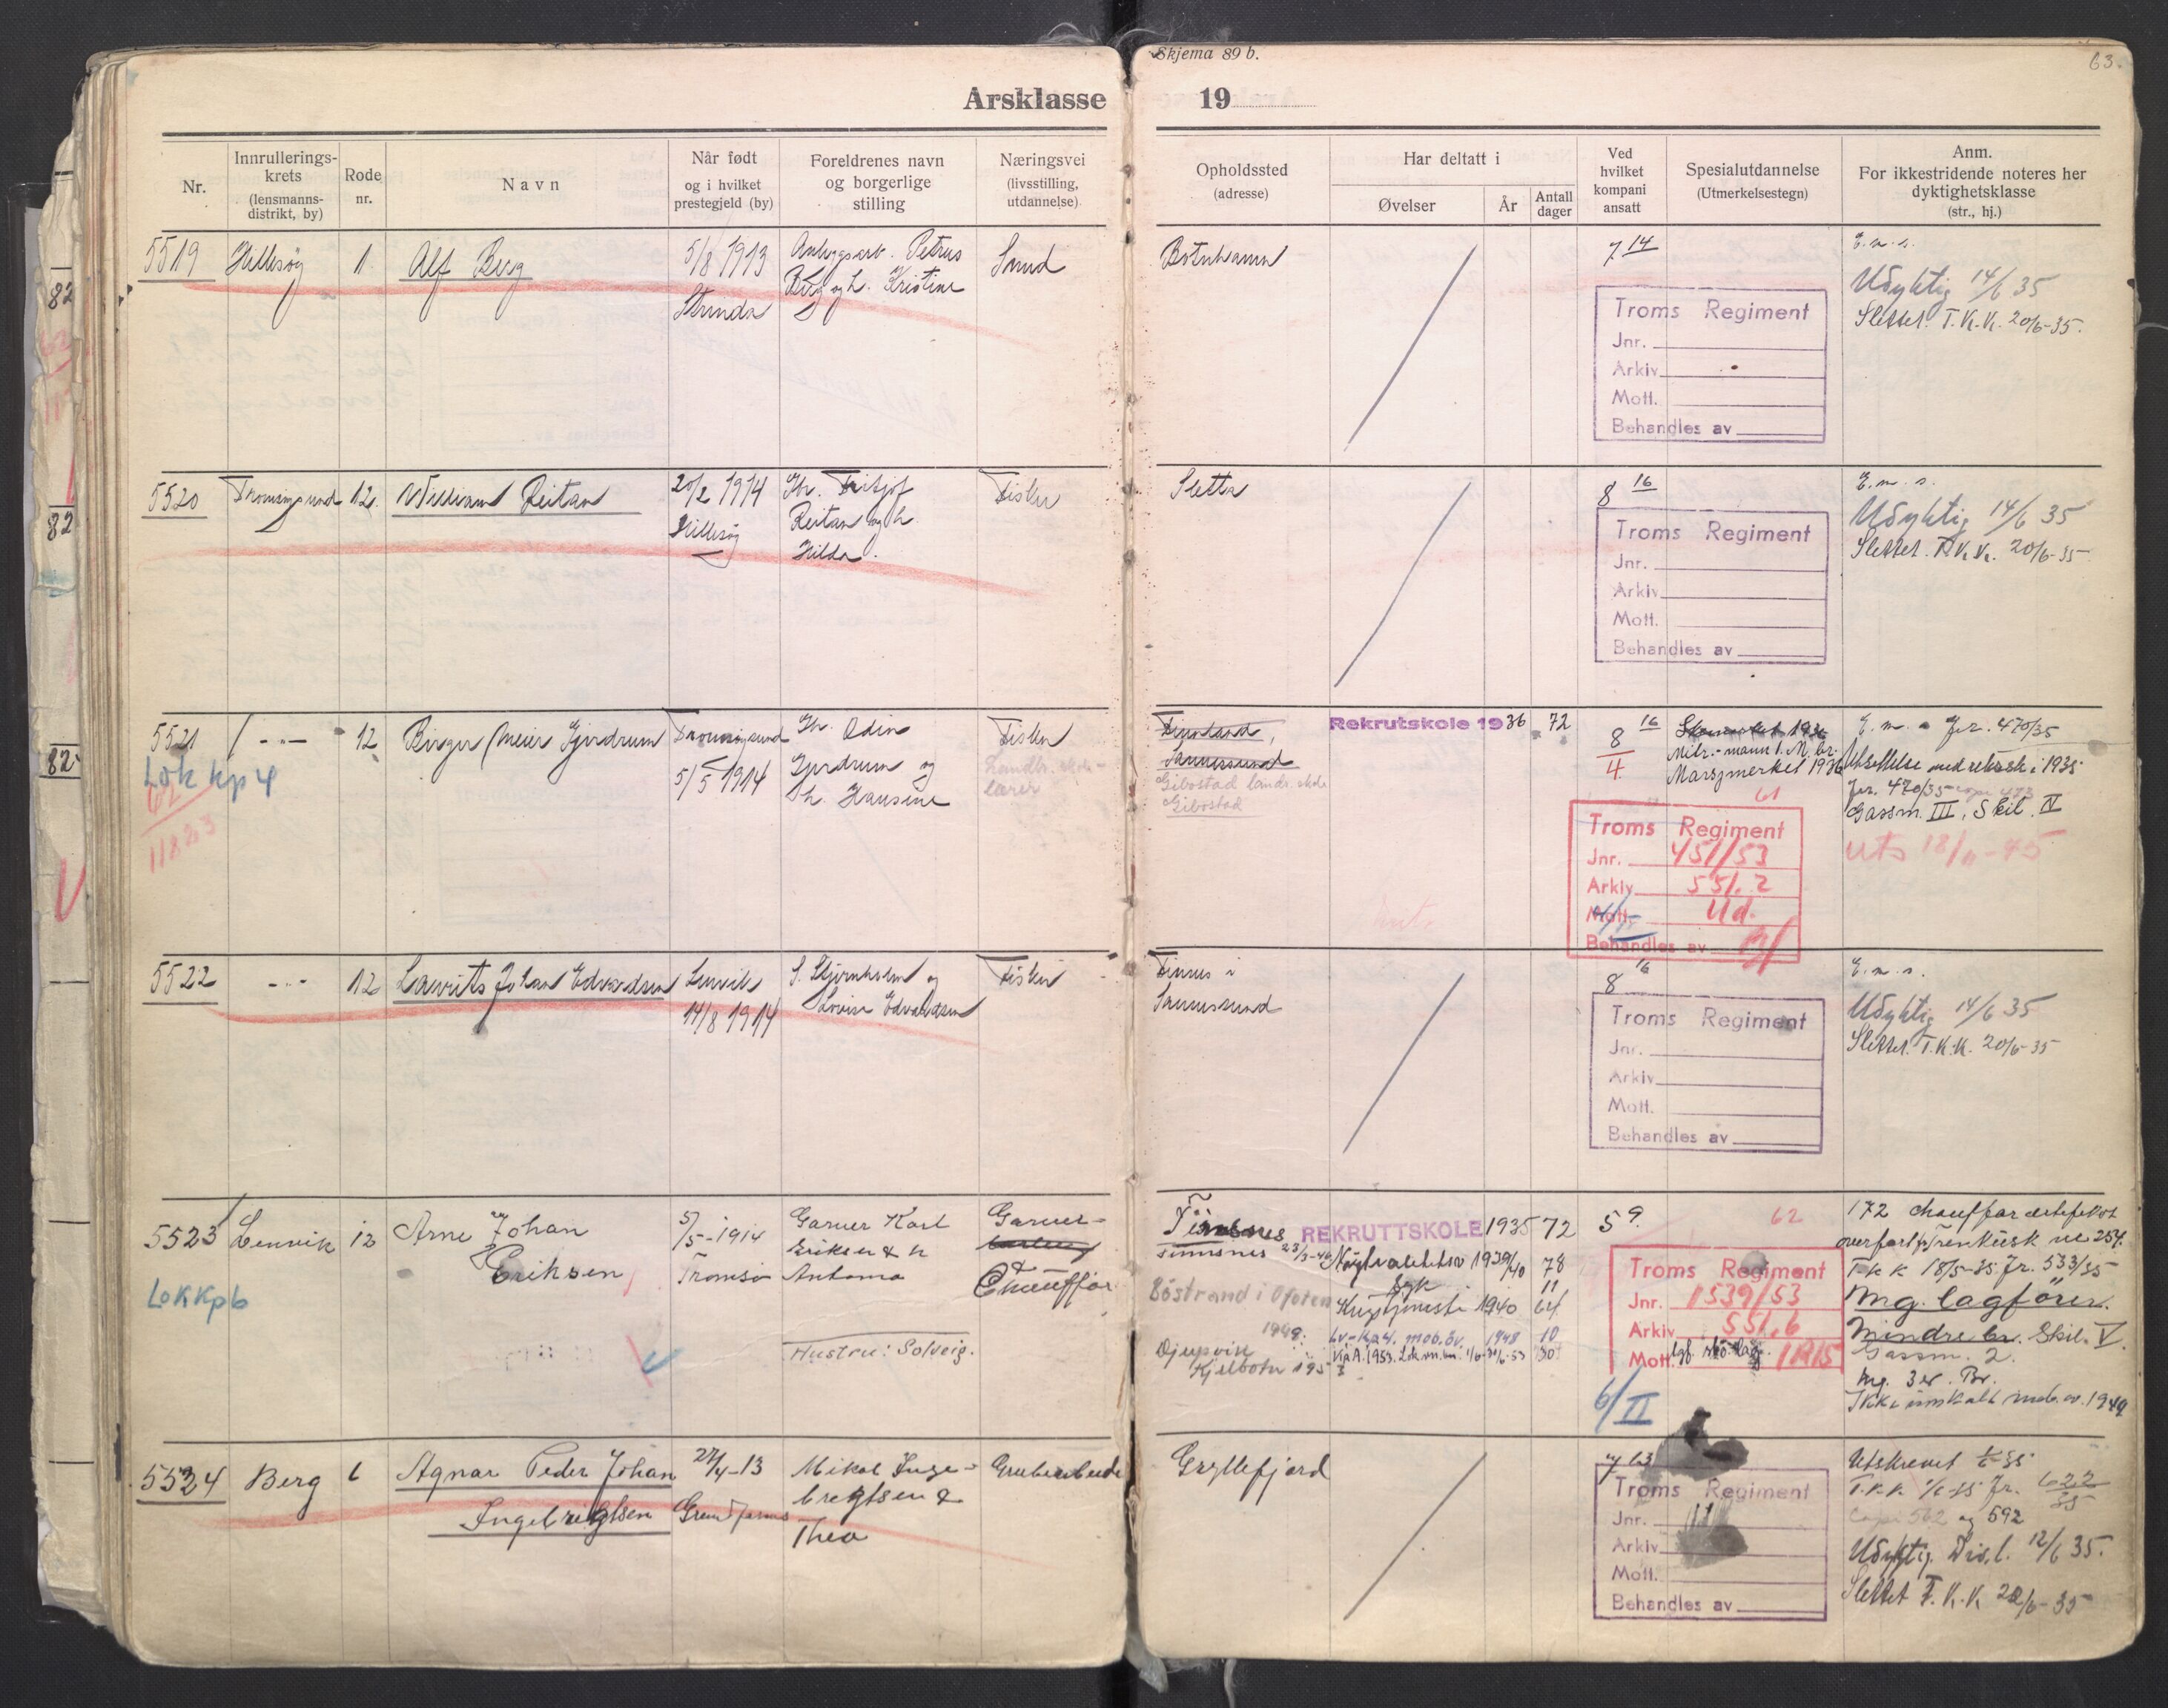 Skjema 89 b.
63.
Årsklasse 19
Nr.
Innrullerings-
krets
(lensmanns-
distrikt, by)
Rode
nr.
Navn
Når født
og i hvilket
prestegjeld (by)
Foreldrenes navn
og borgerlige
stilling
Næringsvei
(livsstilling,
utdannelse)
Opholdssted
(adresse)
Har deltatt i
Øvelser
År
Antall
dager
Ved
hvilket
kompani
ansatt
Spesialutdannelse
(Utmerkelsestegn)
Anm.
For ikkestridende noteres her
dyktighetsklasse
(str., hj.)
5519 Hillesøy 1 Alf Berg
5/8 1913
Strinda
Anleggsarb. Petrus
Berg og h. Kristine
Smed
Botnhamn
7 14
Troms Regiment
Jnr.
Arkiv
Mott.
Behandles av
E. m. s.
Udyktig 14/6 35
Slettet. T.K.K. 20/6-35.
5520 Tromsøysund 12 William Reitan
20/2 1914
Hillesøy
Fritjof
Reitan og h.
Hilda.
Fisker
Sletta
8 16
Troms Regiment
Jnr.
Arkiv
Mott.
Behandles av
E. m. s.
Udyktig 14/6 35
Slettet. T.K.K. 20/6-35
5521 - " - 12 Birger Meier Gjerdrum
Lok kp 4
62
11823
Tromsøysund
5/5 1914
Odin
Gjerdrum og
h. Hansine
Fisker
Landbr. skole-
lærer
Finnland,
Sannessund
Gibostad landbr. skole
Gibostad
Rekrutskole 1936 72
8 16
4
Mitr.-mann 1. M. br.
Marsjmerket 1936
61
Troms Regiment
Jnr. 451/53
Arkiv 551.2
Mott. Ud.
Behandles av
E. m. s. Jr. 470/35
Utsettelse med rekrsk. i 1935
Jr. 470/35
Gassm. III, Skil. IV
uts 18/11-45
5522 - " - 12 Lavrits Johan Edvardsen
Lenvik
14/8 1914
S. Stjernholm og
Lovise Edvardsen
Fisker
Finnes i
Sannessund
8 16
Troms Regiment
Jnr.
Arkiv
Mott.
Behandles av
E. m. s.
Udyktig 14/6 35
Slettet. T.K.K. 20/6-35
5523 Lenvik 12 Arne Johan
Eriksen
Lok Kp 6
5/5-1914
Tromsø
Garver Karl
Eriksen & h
Antona
Hustru: Solveig.
Garver-
Chauffør
Finnsnes
Finnsnes 23/3-46
i Ofoten
1948.
Djupvik
Kjelbotn 1953
REKRUTTSKOLE 1935 72
Nøytralitetsv 1939/40 78
Syk 11
Krigstjeneste 1940 64
Lv-Kp4. mob.øv. 1948 10
59
62
Troms Regiment
Jnr. 1539/53
Arkiv 551.6
Mott. 1215
6/II
172
overført fr. Trenkusk nr. 254.
T K K 18/5-35 Jr. 533/35
Mg. lagfører.
Mindre br. Skil. V.
Gassm. 2.
Mg. 3er. Br.
Ikke innkalt mob. øv. 1949
5524 Berg 6 Agnar Peder Johan
Ingebrigtsen
27/4-13
Mikal Inge-
bregtsen &
Thea
Grubearbeide
Gryllefjord
7 63
Troms Regiment
Jnr. 11
Arkiv
Mott.
Behandles av
Utskrevet
T.K.K. Jr. 622/35
562 og 592
Udyktig Div. l. 12/6 35.
Slettet T.K.K 20/6-35
82
82
82